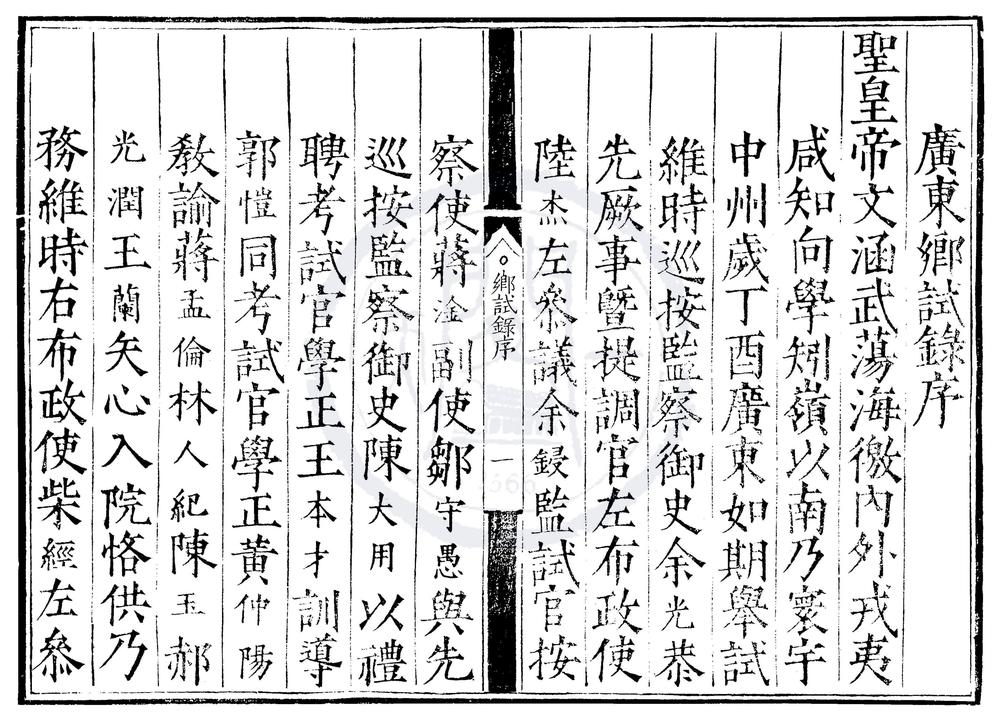 廣東鄉試錄序
聖皇帝文涵武蕩海徼內外戎夷
咸知向學矧嶺以南乃寰宇
中州歲丁酉廣東如期舉試
維時巡按監察御史余光恭
先厥事暨提調官左布政使
陸杰左叅議余鋟監試官按
鄉試錄序
一
察使蔣淦副使鄒守愚與先
巡按監察御史陳大用以禮
聘考試官學正王本才訓導
郭愷同考試官學正黃仲陽
教諭蔣孟倫林人紀陳玉郝
光潤王蘭矢心入院恪供乃
務維時右布政使柴經左叅